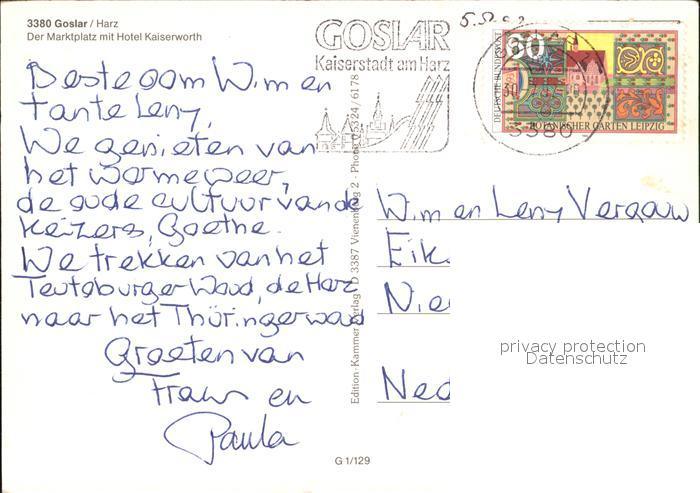 3380 Goslar / Harz
Der Marktplatz mit Hotel Kaiserworth
GOSLAR
Kaiserstadt am Harz
DEUTSCHE BUNDESPOST
60
BOTANISCHER GARTEN LEIPZIG
3380
Beste oom Wim en
tante Leny,
We genieten van
het warme weer,
de oude cultuur van de
Keizers, Goethe.
We trekken van het
Teutoburger Woud, de Harz
naar het Thüringerwoud
Groeten van
Frans en
Paula
Edition-Kammer Verlag · D 3387 Vienenburg 2 · Phone 05324/6178
Wim en Leny Vergouw
Eik
Nie
Ned
privacy protection
Datenschutz
G 1/129